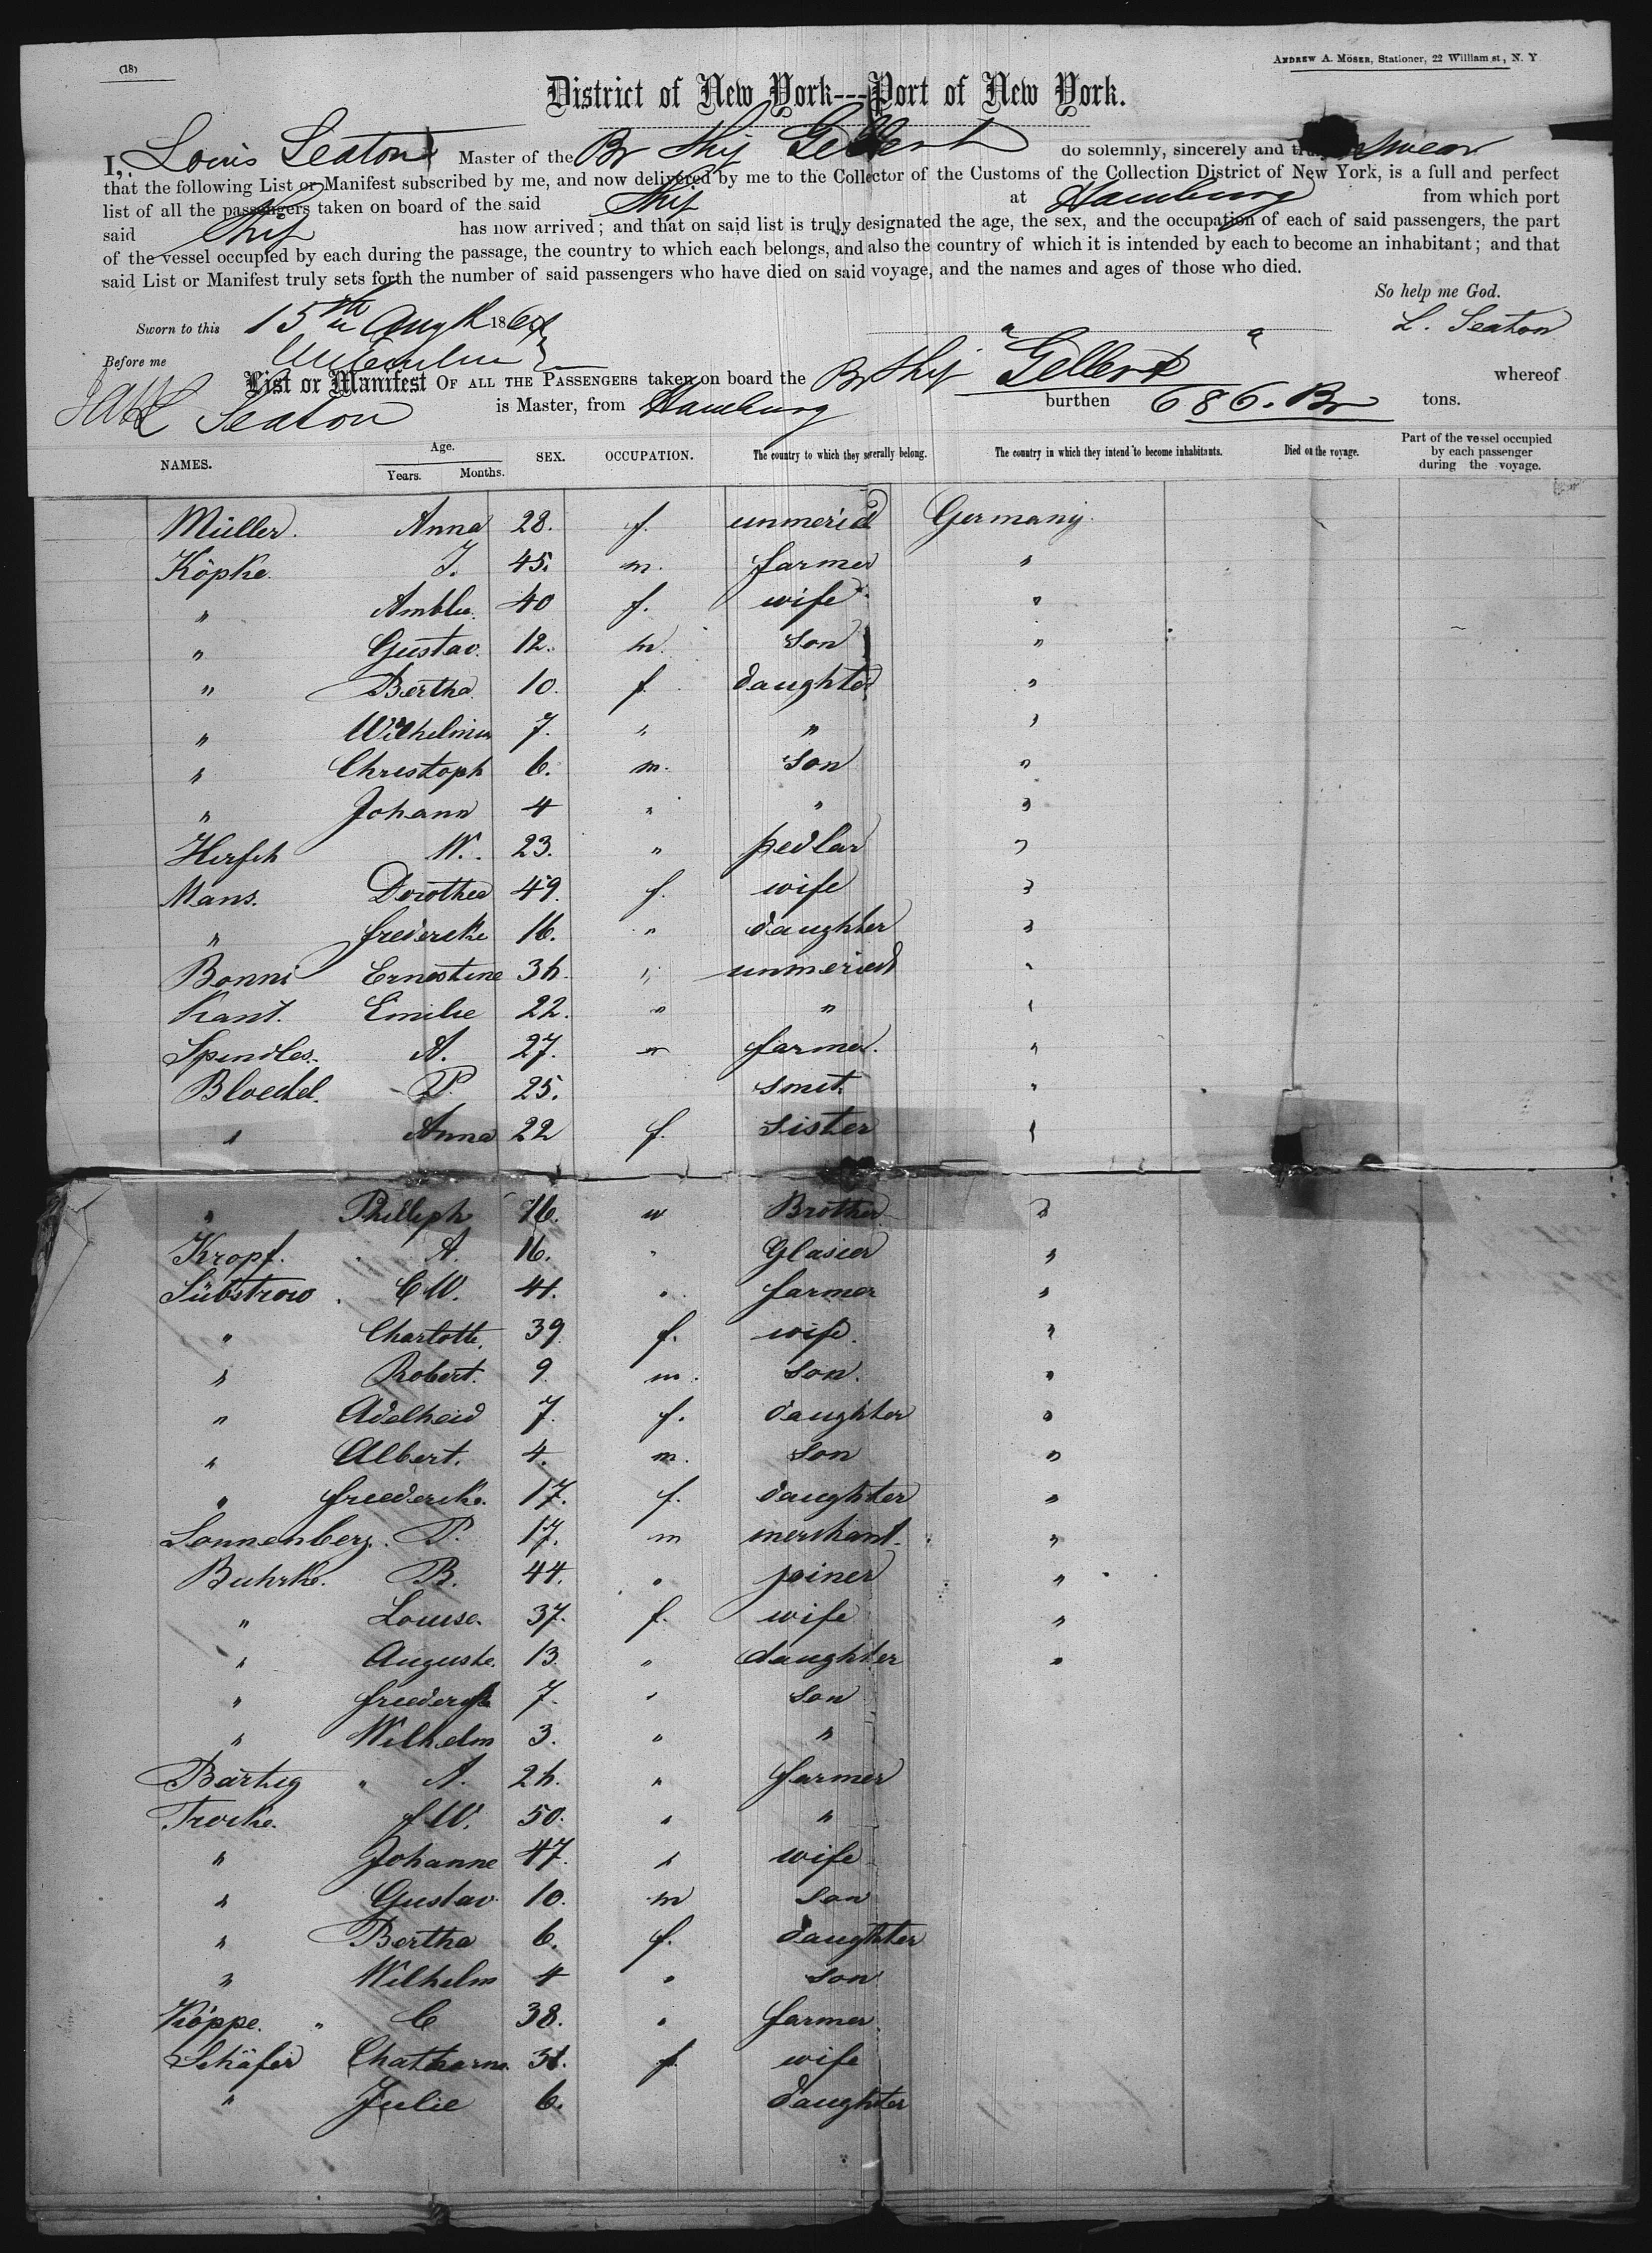 (18)
ANDREW A. MÖSER, Stationer, 22 William st, N. Y
District of New York---Port of New York.
I, Louis Seaton Master of the Br Ship Gellert do solemnly, sincerely and swear
that the following List or Manifest subscribed by me, and now delivered by me to the Collector of the Customs of the Collection District of New York, is a full and perfect
list of all the passengers taken on board of the said Ship at Hamburg from which port
said Ship has now arrived; and that on said list is truly designated the age, the sex, and the occupation of each of said passengers, the part
of the vessel occupied by each during the passage, the country to which each belongs, and also the country of which it is intended by each to become an inhabitant; and that
said List or Manifest truly sets forth the number of said passengers who have died on said voyage, and the names and ages of those who died.
So help me God.
Sworn to this 15th Augt 186
L. Seaton
Before me
List or Manifest OF ALL THE PASSENGERS taken on board the Br Ship Gellert whereof
L Seaton is Master, from Hamburg burthen 686. Br tons.
NAMES. Age. Years. Months. SEX. OCCUPATION. The country to which they severally belong. The country in which they intend to become inhabitants. Died on the voyage. Part of the vessel occupied by each passenger during the voyage.
Müller. Anna 28. f. unmeried Germany
Köpke. J. 45. m. farmer "
" 40 f. wife "
" Gustav. 12. m. son "
" Bertha 10. f. daughter "
" Wilhelmin 7. " " "
" Christoph 6. m. son "
" Johann 4 " " "
Hirsch W. 23. " pedlar "
Mans. Dorothea 49. f. wife "
" frederike 16. " daughter "
Bonni Ernestine 36. " unmeried "
Kant. Emilie 22. " " "
Spindles. A. 27. m farmer. "
Bloedel. P. 25. smit. "
" Anna 22 f. sister "
" Philliph 16. m Brother "
Kropf. A. 16. " Glasier "
Sübstrow. C W. 41. " farmer "
" Charlotte. 39 f. wife. "
" Robert. 9. m. son. "
" Adelheid 7. f. daughter "
" Albert. 4. m. son "
" freederike. 17. f. daughter "
Sonnenberg. P. 17. m merchant. "
Buhrke. B. 44. " joiner "
" Louise. 37. f. wife "
" Auguste. 13. " daughter "
" freederik 7. " son
" Wilhelm 3. " "
Bartig " A. 26. " farmer
Trocke. f W. 50. " "
" Johanne 47. " wife
" Gustav 10. m son
" Bertha 6. f. daughter
" Wilhelm 4 " son
Köppe. " C 38. " farmer.
Schäfer Chatharne 31. f. wife
" Julie 6. daughter